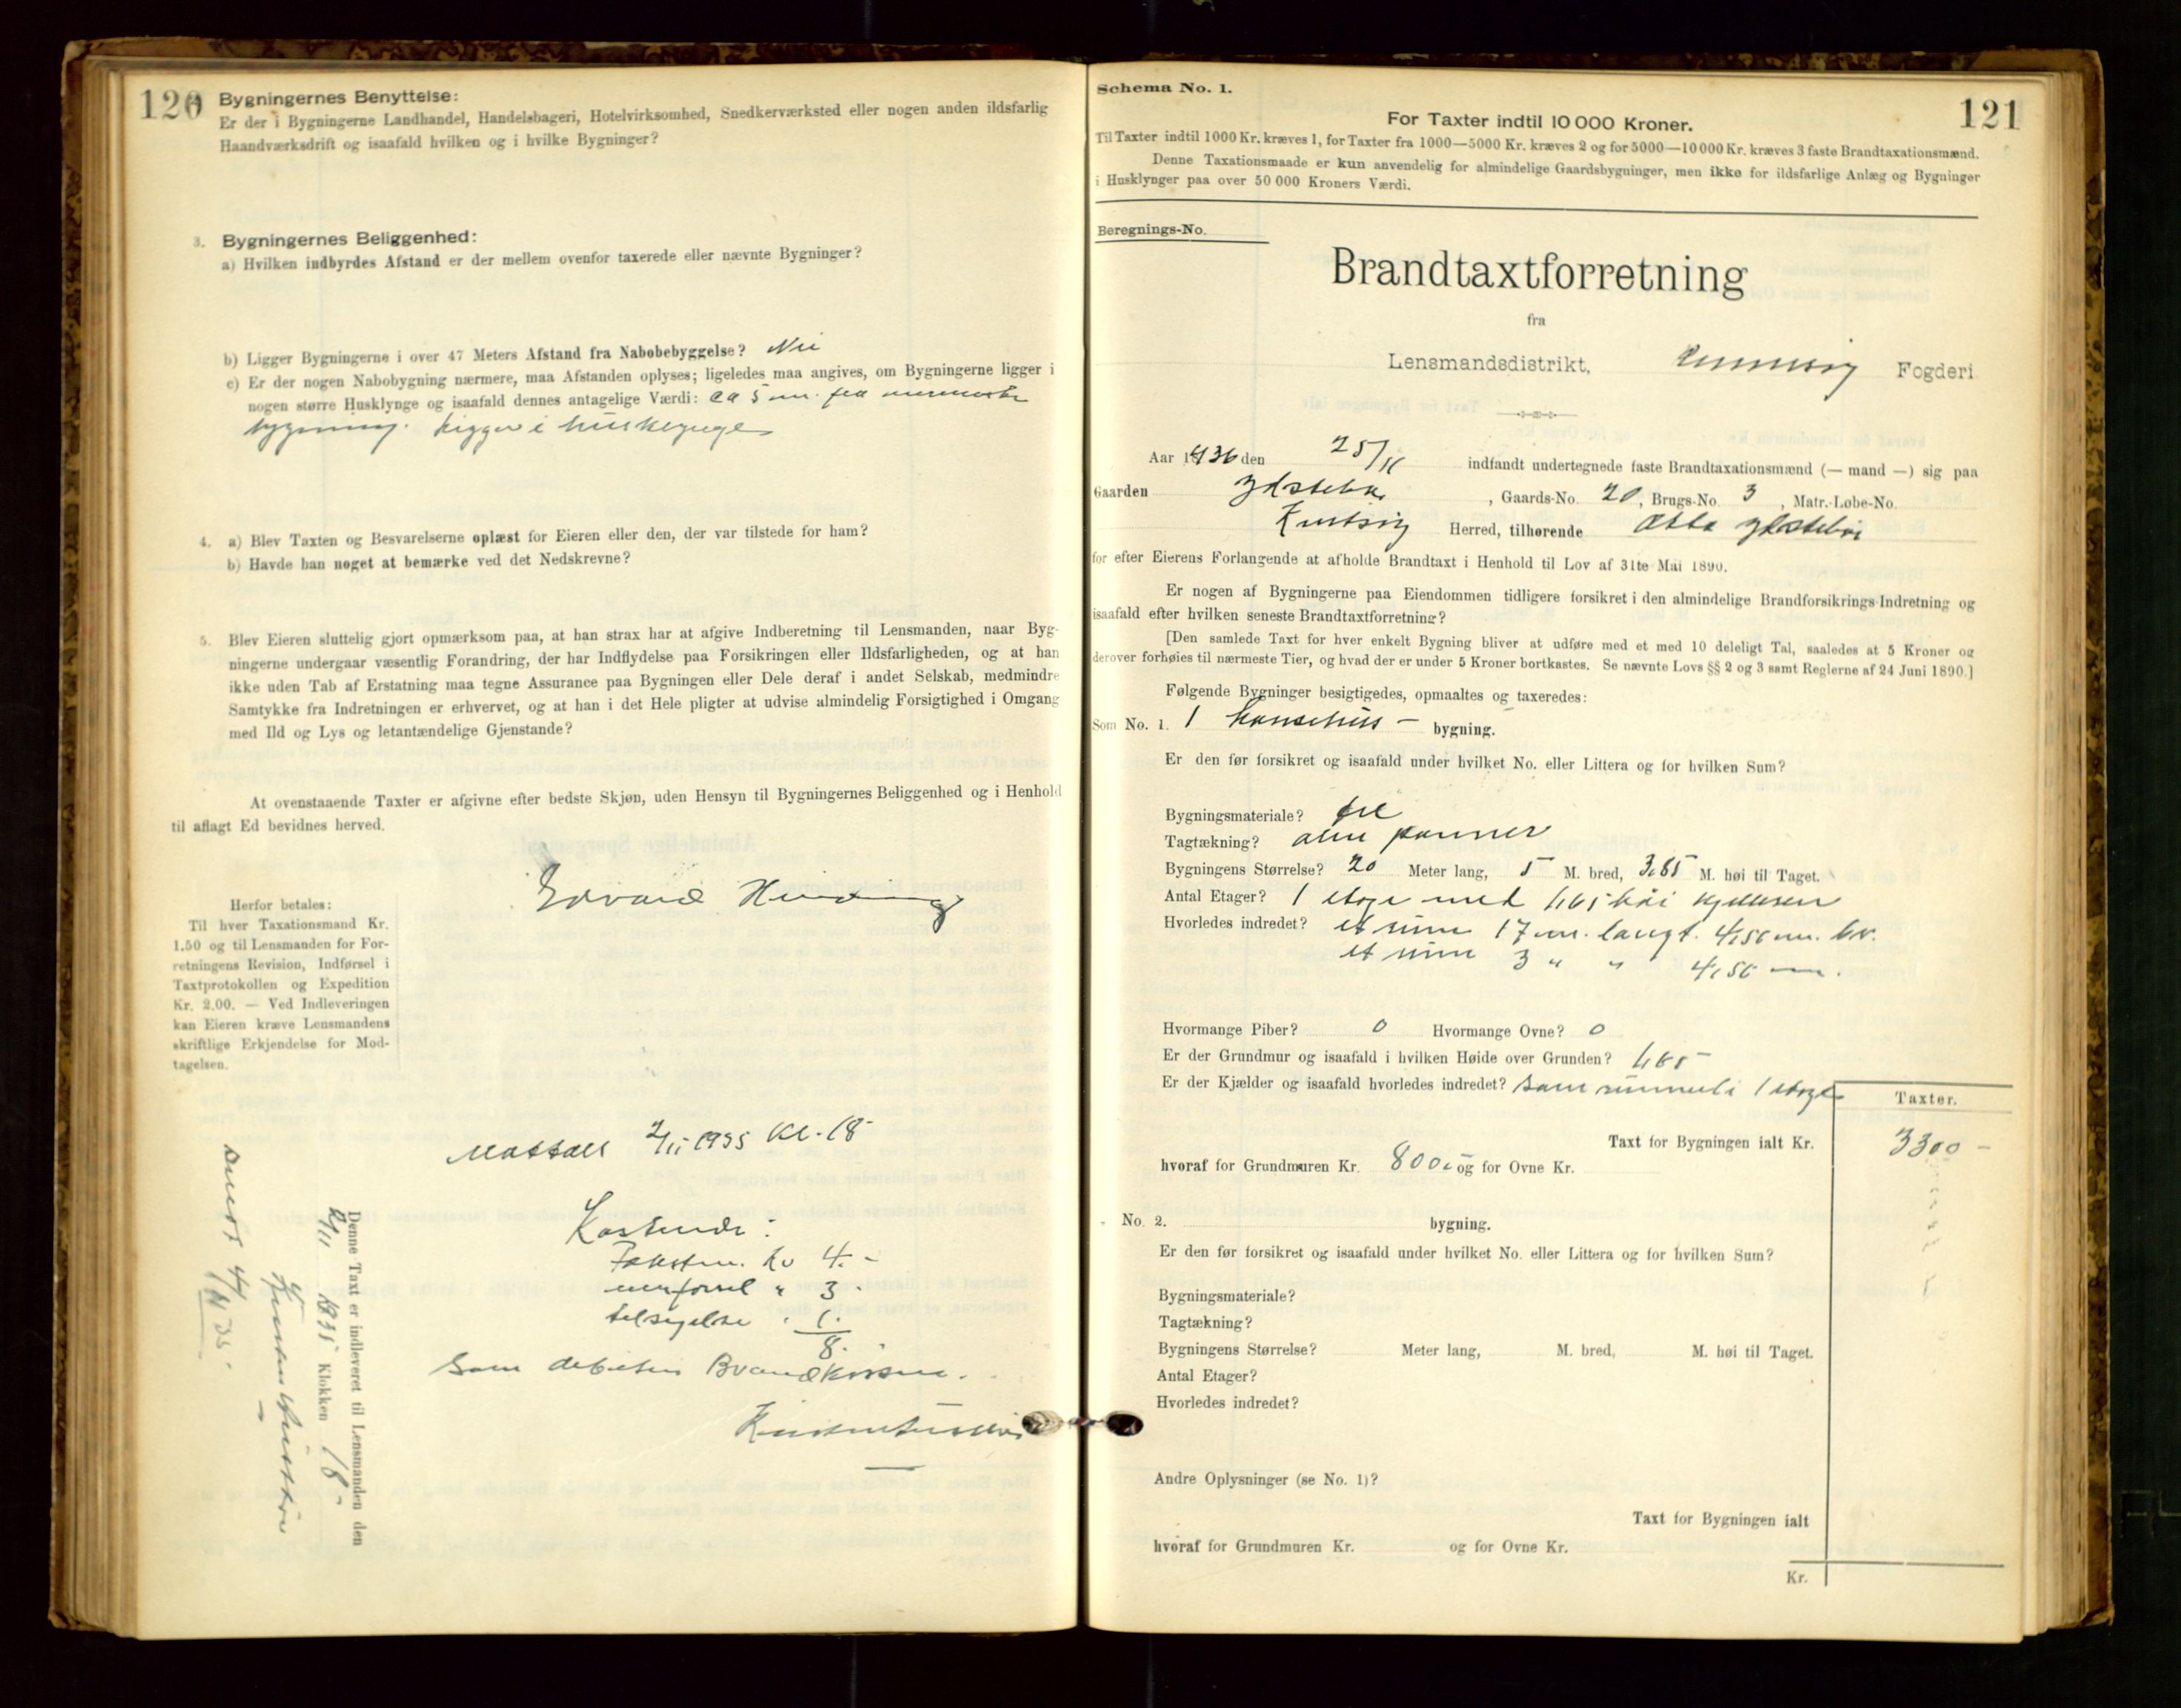 120
Bygningernes Benyttelse:
Er der i Bygningerne Landhandel, Handelsbageri, Hotelvirksomhed, Snedkerværksted eller nogen anden ildsfarlig
Haandværksdrift og isaafald hvilken og i hvilke Bygninger?
3. Bygningernes Beliggenhed:
a) Hvilken indbyrdes Afstand er der mellem ovenfor taxerede eller nævnte Bygninger?
b) Ligger Bygningerne i over 47 Meters Afstand fra Nabobebyggelse? Nei
c) Er der nogen Nabobygning nærmere, maa Afstanden oplyses; ligeledes maa angives, om Bygningerne ligger i
nogen større Husklynge og isaafald dennes antagelige Værdi: ca 5 m. fra nærmeste
bygning. Ligger i husklynge
4. a) Blev Taxten og Besvarelserne oplæst for Eieren eller den, der var tilstede for ham?
b) Havde han noget at bemærke ved det Nedskrevne?
5. Blev Eieren sluttelig gjort opmærksom paa, at han strax har at afgive Indberetning til Lensmanden, naar Byg-
ningerne undergaar væsentlig Forandring, der har Indflydelse paa Forsikringen eller Ildsfarligheden, og at han
ikke uden Tab af Erstatning maa tegne Assurance paa Bygningen eller Dele deraf i andet Selskab, medmindre
Samtykke fra Indretningen er erhvervet, og at han i det Hele pligter at udvise almindelig Forsigtighed i Omgang
med Ild og Lys og letantændelige Gjenstande?
At ovenstaaende Taxter er afgivne efter bedste Skjøn, uden Hensyn til Bygningernes Beliggenhed og i Henhold
til aflagt Ed bevidnes herved.
Edvard
Herfor betales:
Til hver Taxationsmand Kr.
1.50 og til Lensmanden for For-
retningens Revision, Indførsel i
Taxtprotokollen og Expedition
Kr. 2.00. — Ved Indleveringen
kan Eieren kræve Lensmandens
skriftlige Erkjendelse for Mod-
tagelsen.
Mottatt 2/11 1935 Kl. 18
Kostende:
Takstm. kr 4.-
3.
1.
8.
Som debiteres Brandkassen.
Denne Taxt er indleveret til Lensmanden den
2/11 1935 Klokken 18
4/11 35.
Schema No. 1.
121
For Taxter indtil 10 000 Kroner.
Til Taxter indtil 1000 Kr. kræves 1, for Taxter fra 1000—5000 Kr. kræves 2 og for 5000—10 000 Kr. kræves 3 faste Brandtaxationsmænd.
Denne Taxationsmaade er kun anvendelig for almindelige Gaardsbygninger, men ikke for ildsfarlige Anlæg og Bygninger
i Husklynger paa over 50 000 Kroners Værdi.
Beregnings-No.
Brandtaxtforretning
fra
Lensmandsdistrikt, Fogderi
Aar 1936 den 25/ indfandt undertegnede faste Brandtaxationsmænd (— mand —) sig paa
Gaarden , Gaards-No. 20, Brugs-No. 3, Matr.-Løbe-No.
Herred, tilhørende
for efter Eierens Forlangende at afholde Brandtaxt i Henhold til Lov af 31te Mai 1890.
Er nogen af Bygningerne paa Eiendommen tidligere forsikret i den almindelige Brandforsikrings-Indretning og
isaafald efter hvilken seneste Brandtaxtforretning?
[Den samlede Taxt for hver enkelt Bygning bliver at udføre med et med 10 deleligt Tal, saaledes at 5 Kroner og
derover forhøies til nærmeste Tier, og hvad der er under 5 Kroner bortkastes. Se nævnte Lovs §§ 2 og 3 samt Reglerne af 24 Juni 1890.]
Følgende Bygninger besigtigedes, opmaaltes og taxeredes:
Som No. 1. 1 hønsehus — bygning.
Er den før forsikret og isaafald under hvilket No. eller Littera og for hvilken Sum?
Bygningsmateriale?
Tagtækning? alm panner
Bygningens Størrelse? 20 Meter lang, 5 M. bred, M. høi til Taget.
Antal Etager? 1 etage med høi kjelder
Hvorledes indredet? et rum 17 m. langt. 4,50 m. br.
et rum 3 " " 4,50 m.
Hvormange Piber? 0 Hvormange Ovne? 0
Er der Grundmur og isaafald i hvilken Høide over Grunden?
Er der Kjælder og isaafald hvorledes indredet? Som rummet i 1 etage
Taxter.
Taxt for Bygningen ialt Kr. 3300 -
hvoraf for Grundmuren Kr. 800.- og for Ovne Kr.
No. 2. bygning.
Er den før forsikret og isaafald under hvilket No. eller Littera og for hvilken Sum?
Bygningsmateriale?
Tagtækning?
Bygningens Størrelse? Meter lang, M. bred, M. høi til Taget.
Antal Etager?
Hvorledes indredet?
Andre Oplysninger (se No. 1)?
Taxt for Bygningen ialt
hvoraf for Grundmuren Kr. og for Ovne Kr.
Kr.